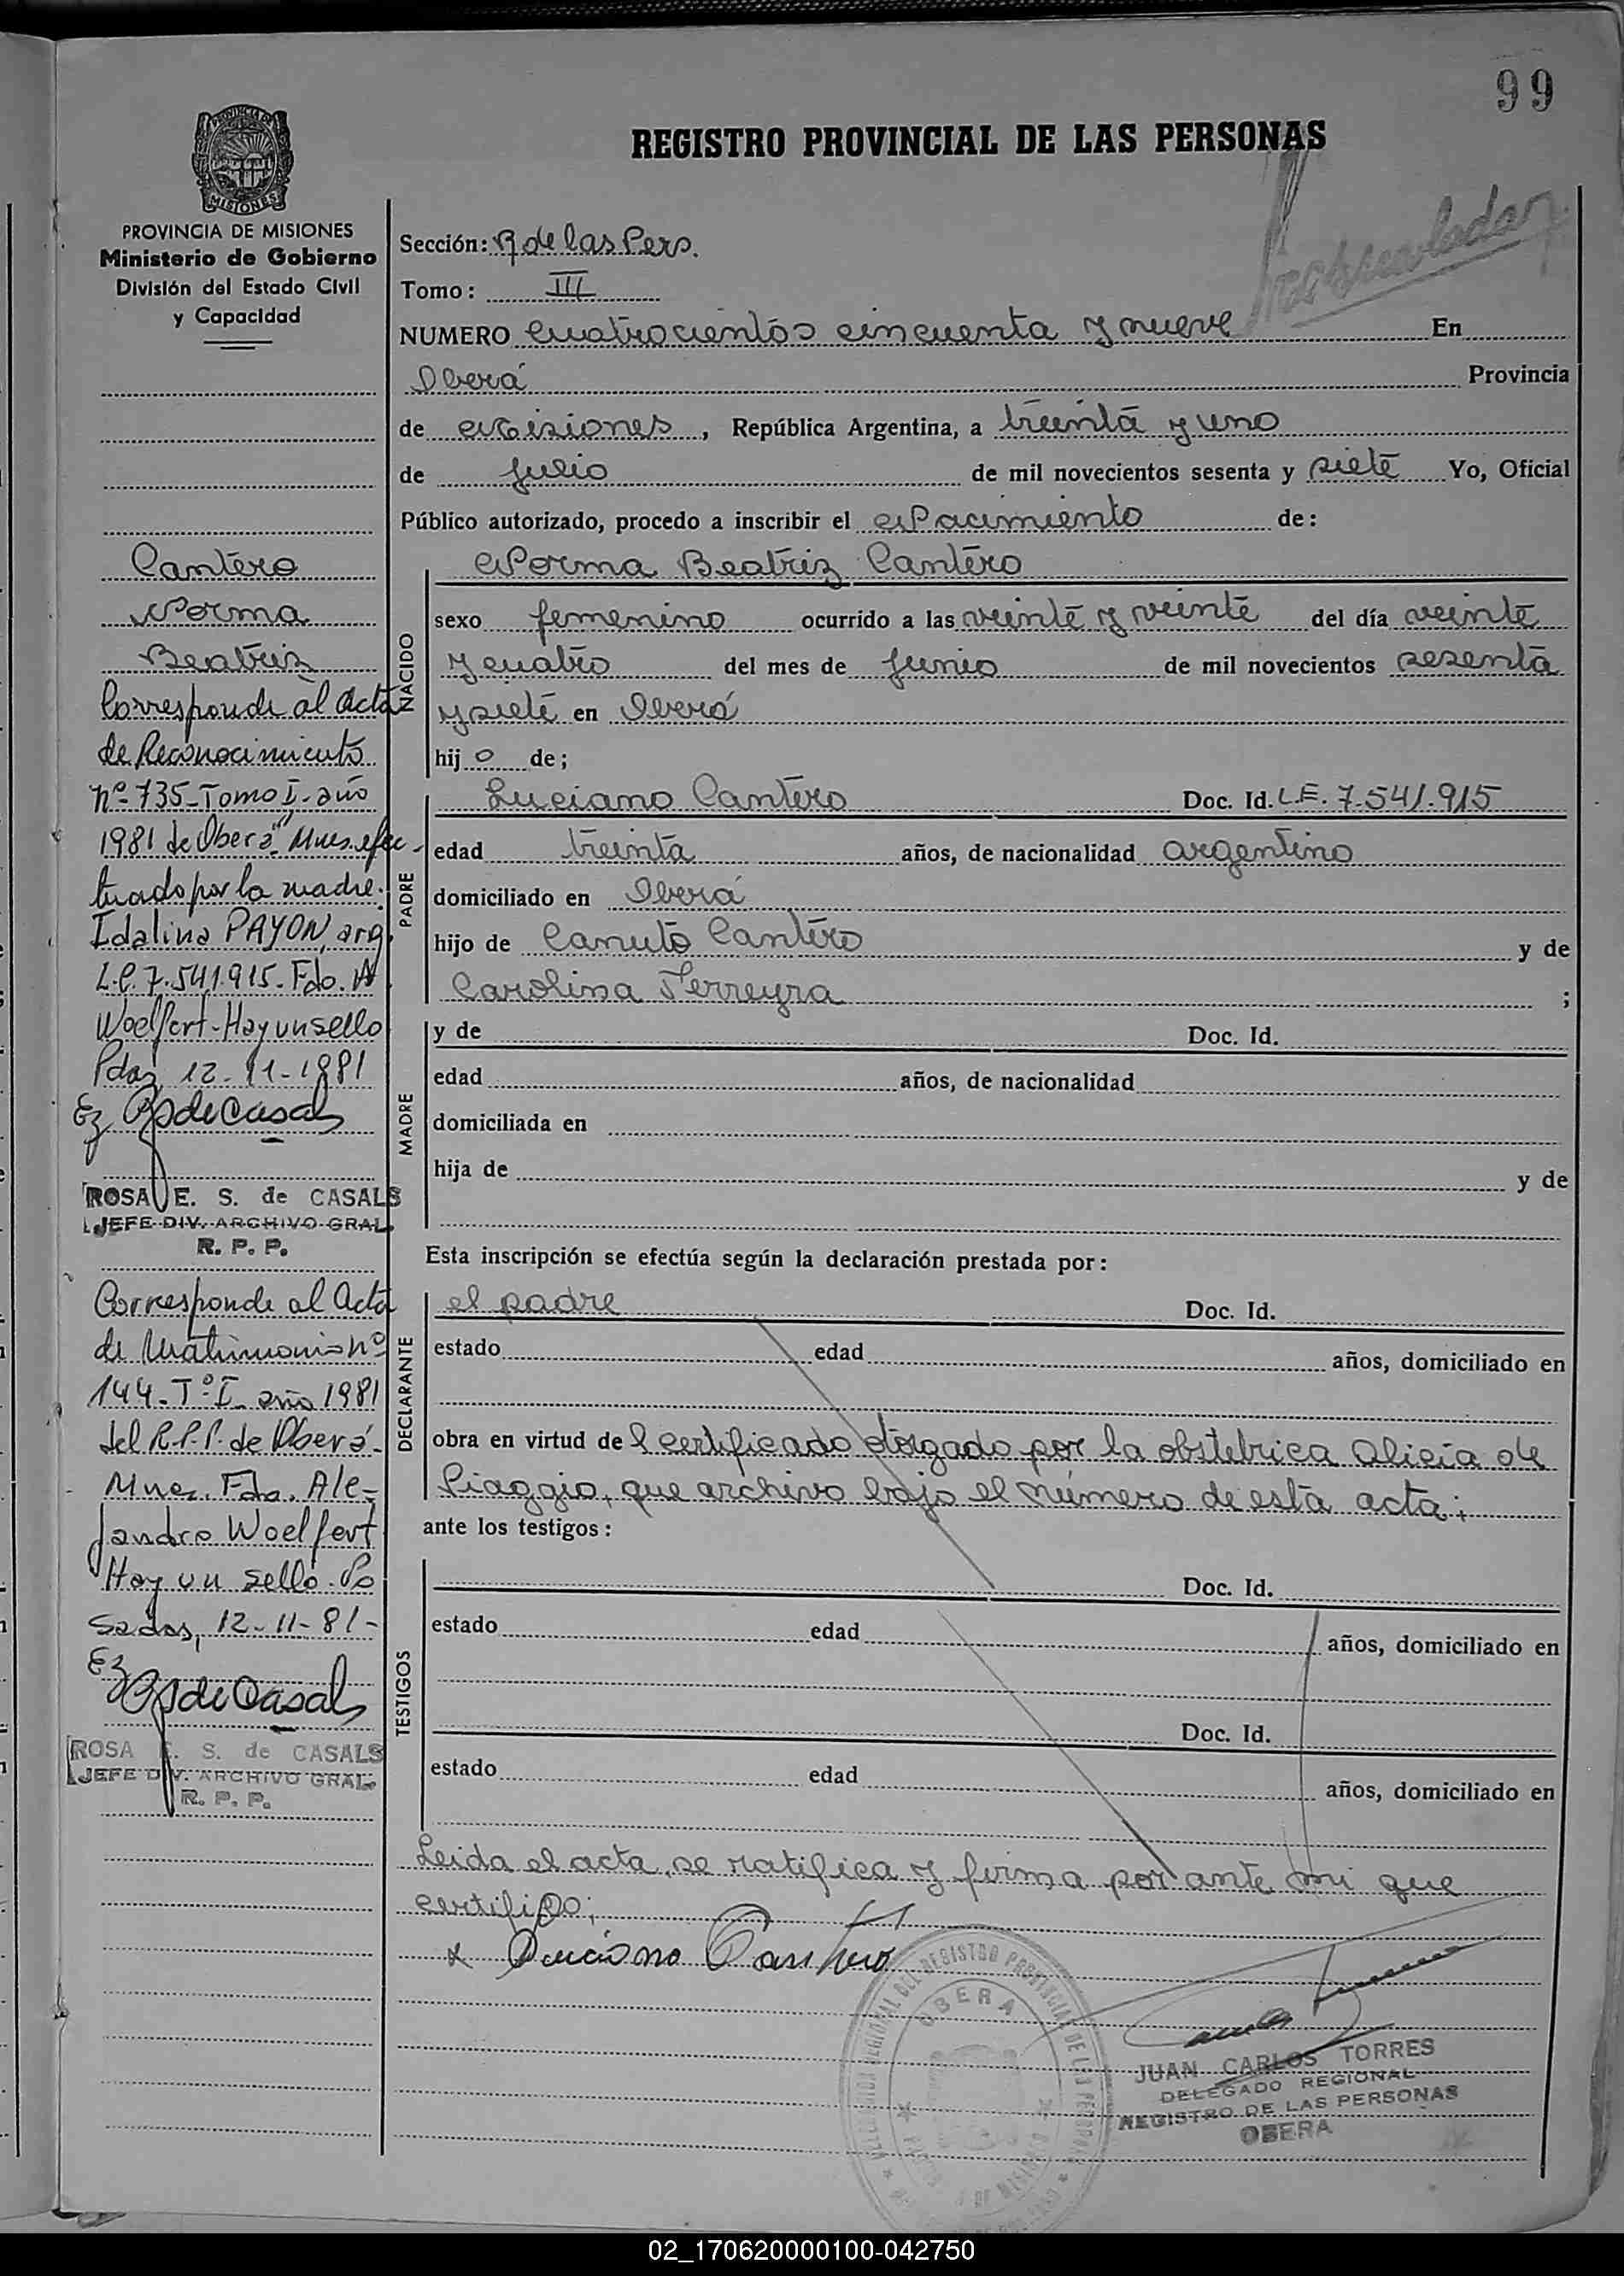 99
REGISTRO PROVINCIAL DE LAS PERSONAS
PROVINCIA DE
MISIONES
PROVINCIA DE MISIONES
Ministerio de Gobierno
División del Estado Civil
y Capacidad
Cantero
Norma
Beatriz
Corresponde al Acta
de Reconocimiento
nº 735-Tomo I-año
1981 de Oberá-Mnes. efec-
tuado por la madre:
Idalina PAYON, arg.
L.C. 7.541.915. Fdo. A
Woelfert-Hay un sello
Pdas, 12-11-1981
ROSA E. S. de CASALS
JEFE DIV. ARCHIVO GRAL.
R. P. P.
Corresponde al Acta
de Matrimonio nº
144-Tº I-año 1981
del R.P.P. de Oberá-
Mnes. Fdo. Ale-
jandro Woelfert
Hay un sello. Po
sadas, 12-11-81-
ROSA E. S. de CASALS
JEFE DIV. ARCHIVO GRAL.
R. P. P.
Sección: R de las Pers.
Tomo: III
NUMERO cuatrocientos cincuenta y nueve En
Oberá Provincia
de Misiones, República Argentina, a treinta y uno
de Julio de mil novecientos sesenta y siete Yo, Oficial
Público autorizado, procedo a inscribir el Nacimiento de:
NACIDO
Norma Beatriz Cantero
sexo femenino ocurrido a las veinte y veinte del día veinte
y cuatro del mes de Junio de mil novecientos sesenta
y siete en Oberá
hij o de;
PADRE
Luciano Cantero Doc. Id. L.E. 7.541.915
edad treinta años, de nacionalidad argentino
domiciliado en Oberá
hijo de Canuto Cantero y de
Carolina Ferreyra ;
MADRE
y de Doc. Id.
edad años, de nacionalidad
domiciliada en
hija de y de
Esta inscripción se efectúa según la declaración prestada por:
DECLARANTE
el padre Doc. Id.
estado edad años, domiciliado en
obra en virtud de l certificado otorgado por la obstetrica Alicia de
Piaggio, que archivo bajo el número de esta acta;
ante los testigos:
TESTIGOS
Doc. Id.
estado edad años, domiciliado en
Doc. Id.
estado edad años, domiciliado en
Leida el acta, se ratifica y firma por ante mi que
certifico;
x Luciano Cantero
OBERA
JUAN CARLOS TORRES
DELEGADO REGIONAL
REGISTRO DE LAS PERSONAS
OBERA
02_170620000100-042750